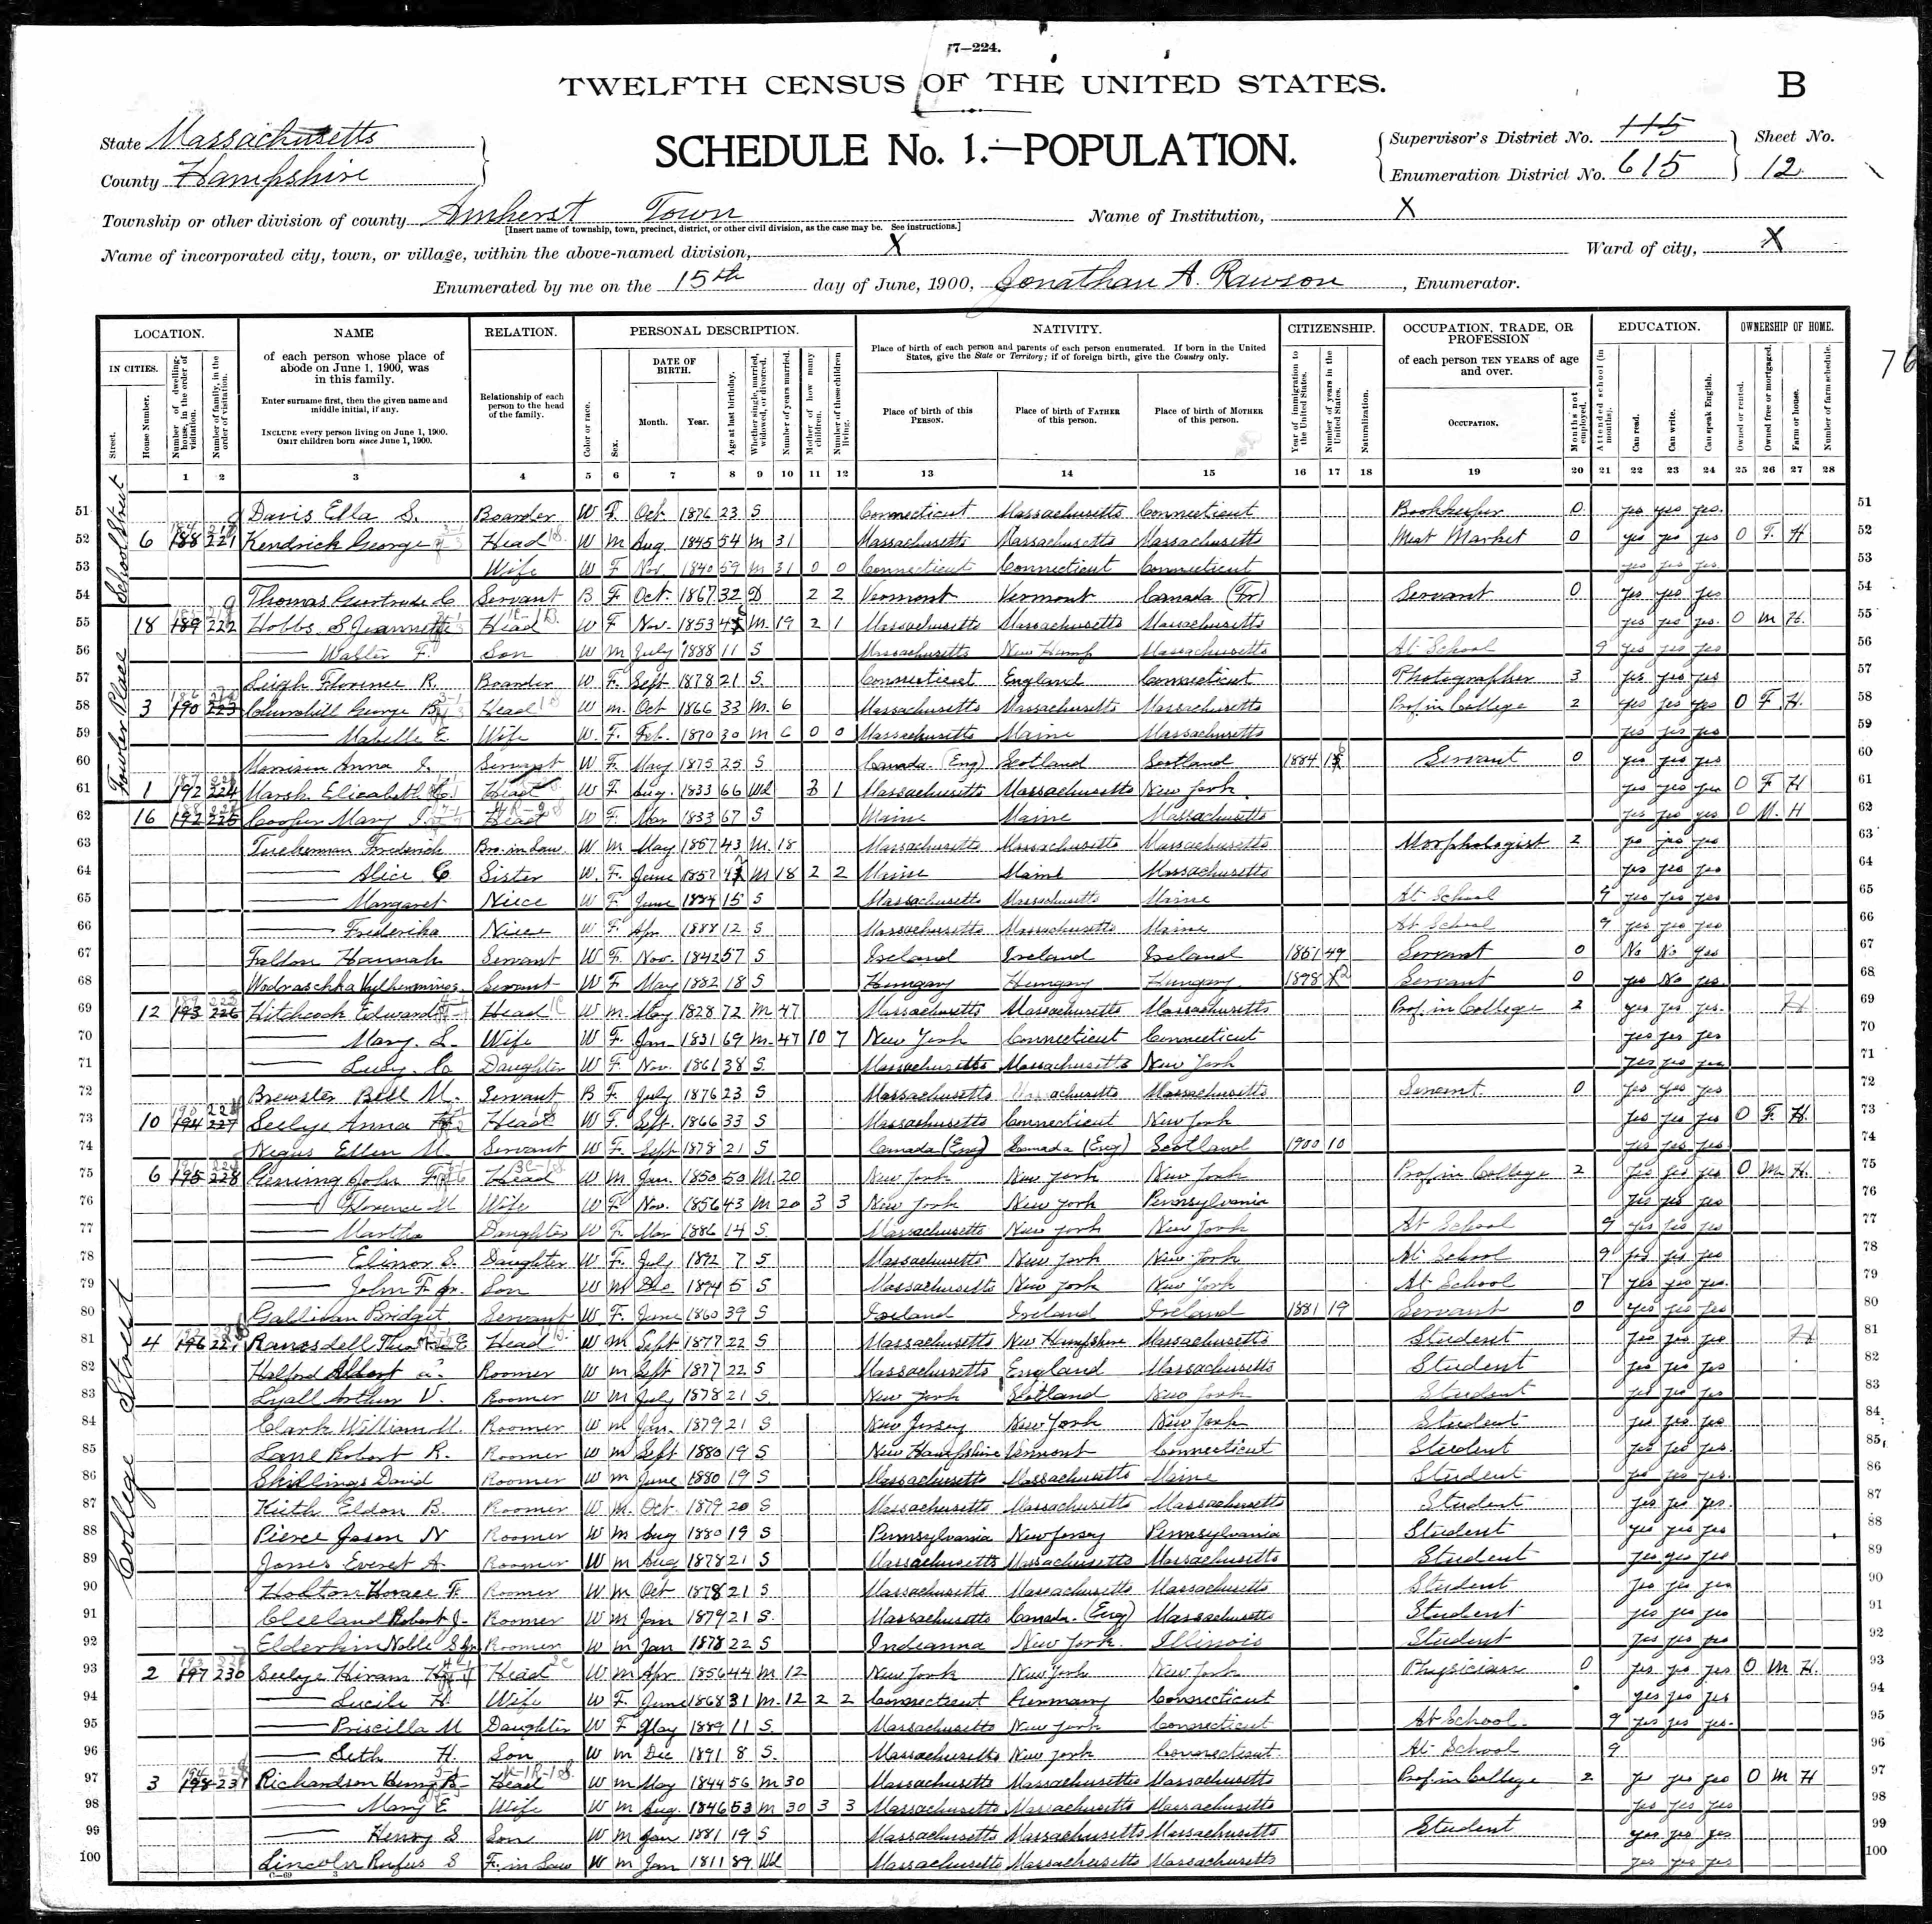 7—224.
TWELFTH CENSUS OF THE UNITED STATES.
B
State Massachusetts
County Hampshire
SCHEDULE No. 1.—POPULATION.
Supervisor's District No. 115
Enumeration District No. 615
Sheet No. 12
Township or other division of county Amherst Town
[Insert name of township, town, precinct, district, or other civil division, as the case may be. See instructions.]
Name of Institution, X
Name of incorporated city, town, or village, within the above-named division, X
Ward of city, X
Enumerated by me on the 15th day of June, 1900, Jonathan A. Rawson, Enumerator.
76
LOCATION. NAME RELATION. PERSONAL DESCRIPTION. NATIVITY. CITIZENSHIP. OCCUPATION, TRADE, OR PROFESSION EDUCATION. OWNERSHIP OF HOME.
IN CITIES.
Street.
House Number.
Number of dwelling-house, in the order of visitation.
Number of family, in the order of visitation.
of each person whose place of abode on June 1, 1900, was in this family.
Enter surname first, then the given name and middle initial, if any.
INCLUDE every person living on June 1, 1900.
OMIT children born since June 1, 1900.
Relationship of each person to the head of the family.
Color or race.
Sex.
DATE OF BIRTH.
Month. Year.
Age at last birthday.
Whether single, married, widowed, or divorced.
Number of years married.
Mother of how many children.
Number of these children living.
Place of birth of each person and parents of each person enumerated. If born in the United States, give the State or Territory; if of foreign birth, give the Country only.
Place of birth of this PERSON.
Place of birth of FATHER of this person.
Place of birth of MOTHER of this person.
Year of immigration to the United States.
Number of years in the United States.
Naturalization.
of each person TEN YEARS of age and over.
OCCUPATION.
Months not employed.
Attended school (in months).
Can read.
Can write.
Can speak English.
Owned or rented.
Owned free or mortgaged.
Farm or house.
Number of farm schedule.
1 2 3 4 5 6 7 8 9 10 11 12 13 14 15 16 17 18 19 20 21 22 23 24 25 26 27 28
School Street
Fowler Place
College Street
51 Davis Ella S. Boarder W F Oct. 1876 23 S Connecticut Massachusetts Connecticut Bookkeeper 0 yes yes yes 51
52 6 188 221 Kendrick George Head W m Aug. 1845 54 m 31 Massachusetts Massachusetts Massachusetts Meat Market 0 yes yes yes O F. H 52
53 Wife W F Nov 1840 59 m 31 0 0 Connecticut Connecticut Connecticut yes yes yes 53
54 Thomas Gertrude C Servant B F Oct. 1867 32 D 2 2 Vermont Vermont Canada (Fr) Servant 0 yes yes yes 54
55 18 189 222 Hobbs S Jeannette Head W F Nov. 1853 M. 19 2 1 Massachusetts Massachusetts Massachusetts yes yes yes O m H. 55
56 Walter F. Son W m July 1888 11 S Massachusetts New Hamp Massachusetts At School 9 yes yes yes 56
57 Leigh Florence R. Boarder W F. Sept 1878 21 S. Connecticut England Connecticut Photographer 3 yes yes yes 57
58 3 190 223 Churchill George Head W m. Oct 1866 33 M. 6 Massachusetts Massachusetts Massachusetts Prof. in College 2 yes yes yes O F. H. 58
59 Mabelle E. Wife W. F. Feb. 1870 30 m 6 0 0 Massachusetts Maine Massachusetts yes yes yes 59
60 Morrison Anna S. Servant W F. May 1875 25 S Canada (Eng) Scotland Scotland 1884 Servant 0 yes yes yes 60
61 1 192 224 Marsh Elizabeth Head W F. Aug. 1833 66 Wd 3 1 Massachusetts Massachusetts New York yes yes yes O F H 61
62 16 192 225 Cooper Mary Head W F. Mar 1833 67 S Maine Maine Massachusetts yes yes yes O M. H 62
63 Tuckerman Frederick Bro in law W m May 1857 43 M. 18 Massachusetts Massachusetts Massachusetts Morphologist 2 yes yes yes 63
64 Alice C Sister W. F. June 1857 M 18 2 2 Maine Maine Massachusetts yes yes yes 64
65 Margaret Niece W F June 1884 15 S Massachusetts Massachusetts Maine At School 9 yes yes yes 65
66 Frederika Niece W F. Apr 1888 12 S Massachusetts Massachusetts Maine At School 9 yes yes yes 66
67 Fallon Hannah Servant W F. Nov. 1842 57 S Ireland Ireland Ireland 1851 49 Servant 0 No No yes 67
68 Servant W F May 1882 18 S Hungary Hungary Hungary 1898 2 Servant 0 yes No yes 68
69 12 193 226 Hitchcock Edward Head W m May 1828 72 m 47 Massachusetts Massachusetts Massachusetts Prof. in College 2 yes yes yes H 69
70 Mary L. Wife W F. Jan 1831 69 m 47 10 7 New York Connecticut Connecticut yes yes yes 70
71 Lucy C Daughter W F. Nov. 1861 38 S. Massachusetts Massachusetts New York yes yes yes 71
72 Brewster Bell M. Servant B F. July 1876 23 S Massachusetts Massachusetts Massachusetts Servant 0 yes yes yes 72
73 10 194 227 Seelye Anna Head W F. Sept. 1866 33 S Massachusetts Connecticut New York yes yes yes O F. H. 73
74 Negus Ellen M. Servant W F. Sept 1878 21 S Canada (Eng) Canada (Eng) Scotland 1900 10 yes yes yes 74
75 6 195 228 Genung John F Head W m Jan. 1850 50 M. 20 New York New York New York Prof. in College 2 yes yes yes O M. H. 75
76 Florence M Wife W F Nov. 1856 43 M 20 3 3 New York New York Pennsylvania yes yes yes 76
77 Martha Daughter W F. Mar 1886 14 S Massachusetts New York New York At School 9 yes yes yes 77
78 Elinor S. Daughter W F. July 1892 7 S Massachusetts New York New York At School 9 yes yes yes 78
79 John F. Jr. Son W m Dec 1894 5 S Massachusetts New York New York At School 7 yes yes yes 79
80 Gallivan Bridget Servant W F. June 1860 39 S Ireland Ireland Ireland 1881 19 Servant 0 yes yes yes 80
81 4 196 Ramsdell Head W m Sept 1877 22 S Massachusetts New Hampshire Massachusetts Student yes yes yes H 81
82 Halford Albert a. Roomer W m Sept 1877 22 S Massachusetts England Massachusetts Student yes yes yes 82
83 Lyall Arthur V. Roomer W M July 1878 21 S. New York Scotland New York Student yes yes yes 83
84 Clark William M. Roomer W m Jan. 1879 21 S New Jersey New York New York Student yes yes yes 84
85 Lane Robert R. Roomer W m Sept 1880 19 S New Hampshire Vermont Connecticut Student yes yes yes 85
86 Skillings David Roomer W m June 1880 19 S Massachusetts Massachusetts Maine Student yes yes yes 86
87 Keith Eldon B. Roomer W m. Oct. 1879 20 S Massachusetts Massachusetts Massachusetts Student yes yes yes 87
88 Pierce Jason N Roomer W m Aug 1880 19 S Pennsylvania New Jersey Pennsylvania Student yes yes yes 88
89 Jones Everet A. Roomer W m Aug 1878 21 S Massachusetts Massachusetts Massachusetts Student yes yes yes 89
90 Holton Horace F. Roomer W m Oct 1878 21 S Massachusetts Massachusetts Massachusetts Student yes yes yes 90
91 Cleeland Robert J. Roomer W m Jan 1879 21 S. Massachusetts Canada (Eng) Massachusetts Student yes yes yes 91
92 Elderkin Noble S Jr. Roomer W m Jan 1878 22 S Indeanna New York Illinois Student yes yes yes 92
93 2 197 230 Seelye Hiram H Head W m Apr. 1856 44 m 12 New York New York New York Physician 0 yes yes yes O m H. 93
94 Lucile H. Wife W F. June 1868 31 m. 12 2 2 Connecticut Germany Connecticut yes yes yes 94
95 Priscilla M Daughter W F May 1889 11 S. Massachusetts New York Connecticut At School 9 yes yes yes 95
96 Seth H. Son W m Dec 1891 8 S. Massachusetts New York Connecticut At School 9 96
97 3 198 231 Richardson Henry B. Head W m May 1844 56 m 30 Massachusetts Massachusetts Massachusetts Prof. in College 2 yes yes yes O m H 97
98 Mary E Wife W m Aug. 1846 53 m 30 3 3 Massachusetts Massachusetts Massachusetts yes yes yes 98
99 Henry S Son W m Jan 1881 19 S Massachusetts Massachusetts Massachusetts Student yes yes yes 99
100 Lincoln Rufus S F. in Law W m Jan 1811 89 Wd Massachusetts Massachusetts Massachusetts yes yes yes 100